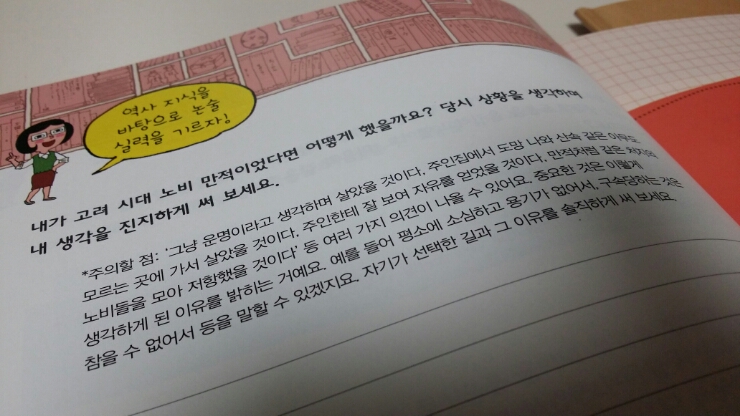 역사 지식을
바탕으로 논술
실력을 기르자!
내가 고려 시대 노비 만적이었다면 어떻게 했을까요? 당시 상황을 생각하며
내 생각을 진지하게 써 보세요.
*주의할 점: ‘그냥 운명이라고 생각하며 살았을 것이다, 주인집에서 도망 나와 산속 같은 아무도
모르는 곳에 가서 살았을 것이다, 주인한테 잘 보여 자유를 얻었을 것이다, 만적처럼 같은 처지의
노비들을 모아 저항했을 것이다’ 등 여러 가지 의견이 나올 수 있어요. 중요한 것은 이렇게
생각하게 된 이유를 밝히는 거예요. 예를 들어 평소에 소심하고 용기가 없어서, 구속당하는 것은
참을 수 없어서 등을 말할 수 있겠지요. 자기가 선택한 길과 그 이유를 솔직하게 써 보세요.